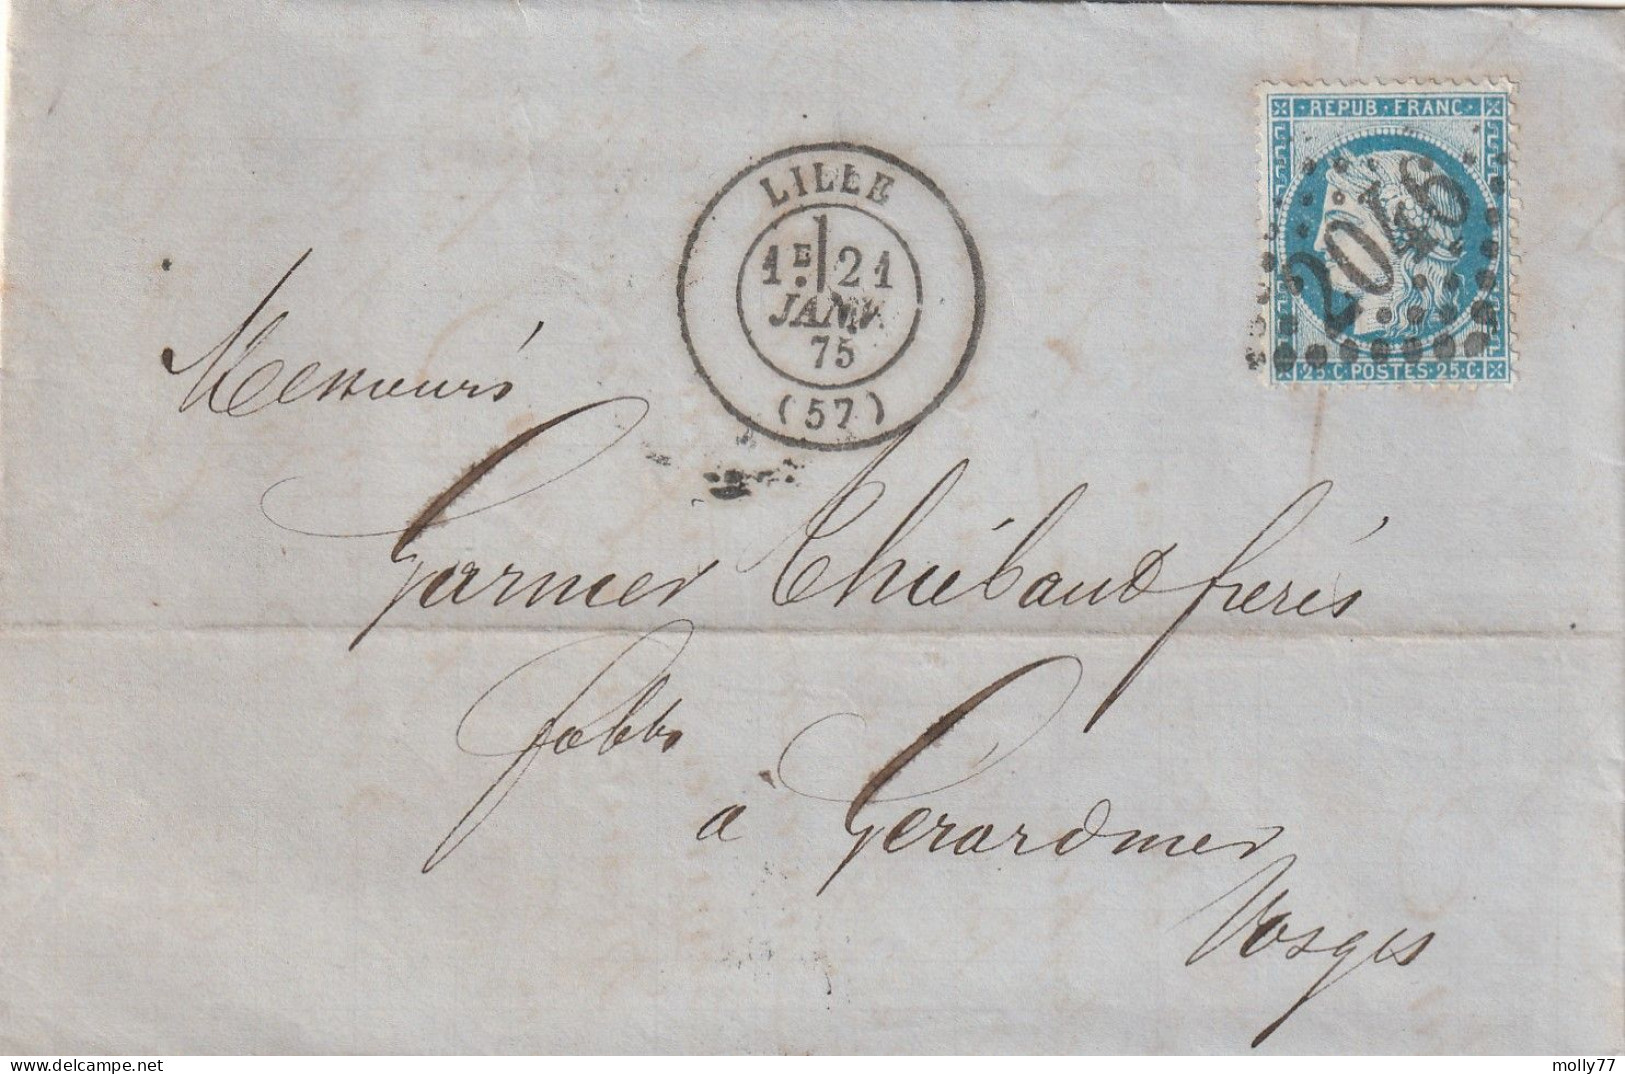 REPUB · FRANC
2046
25 · C · POSTES · 25 · C
LILLE
1E 21
JANV.
75
(57)
Messieurs
Garnier Thiébaut frères
fabts
à Gerardmer
Vosges
molly77